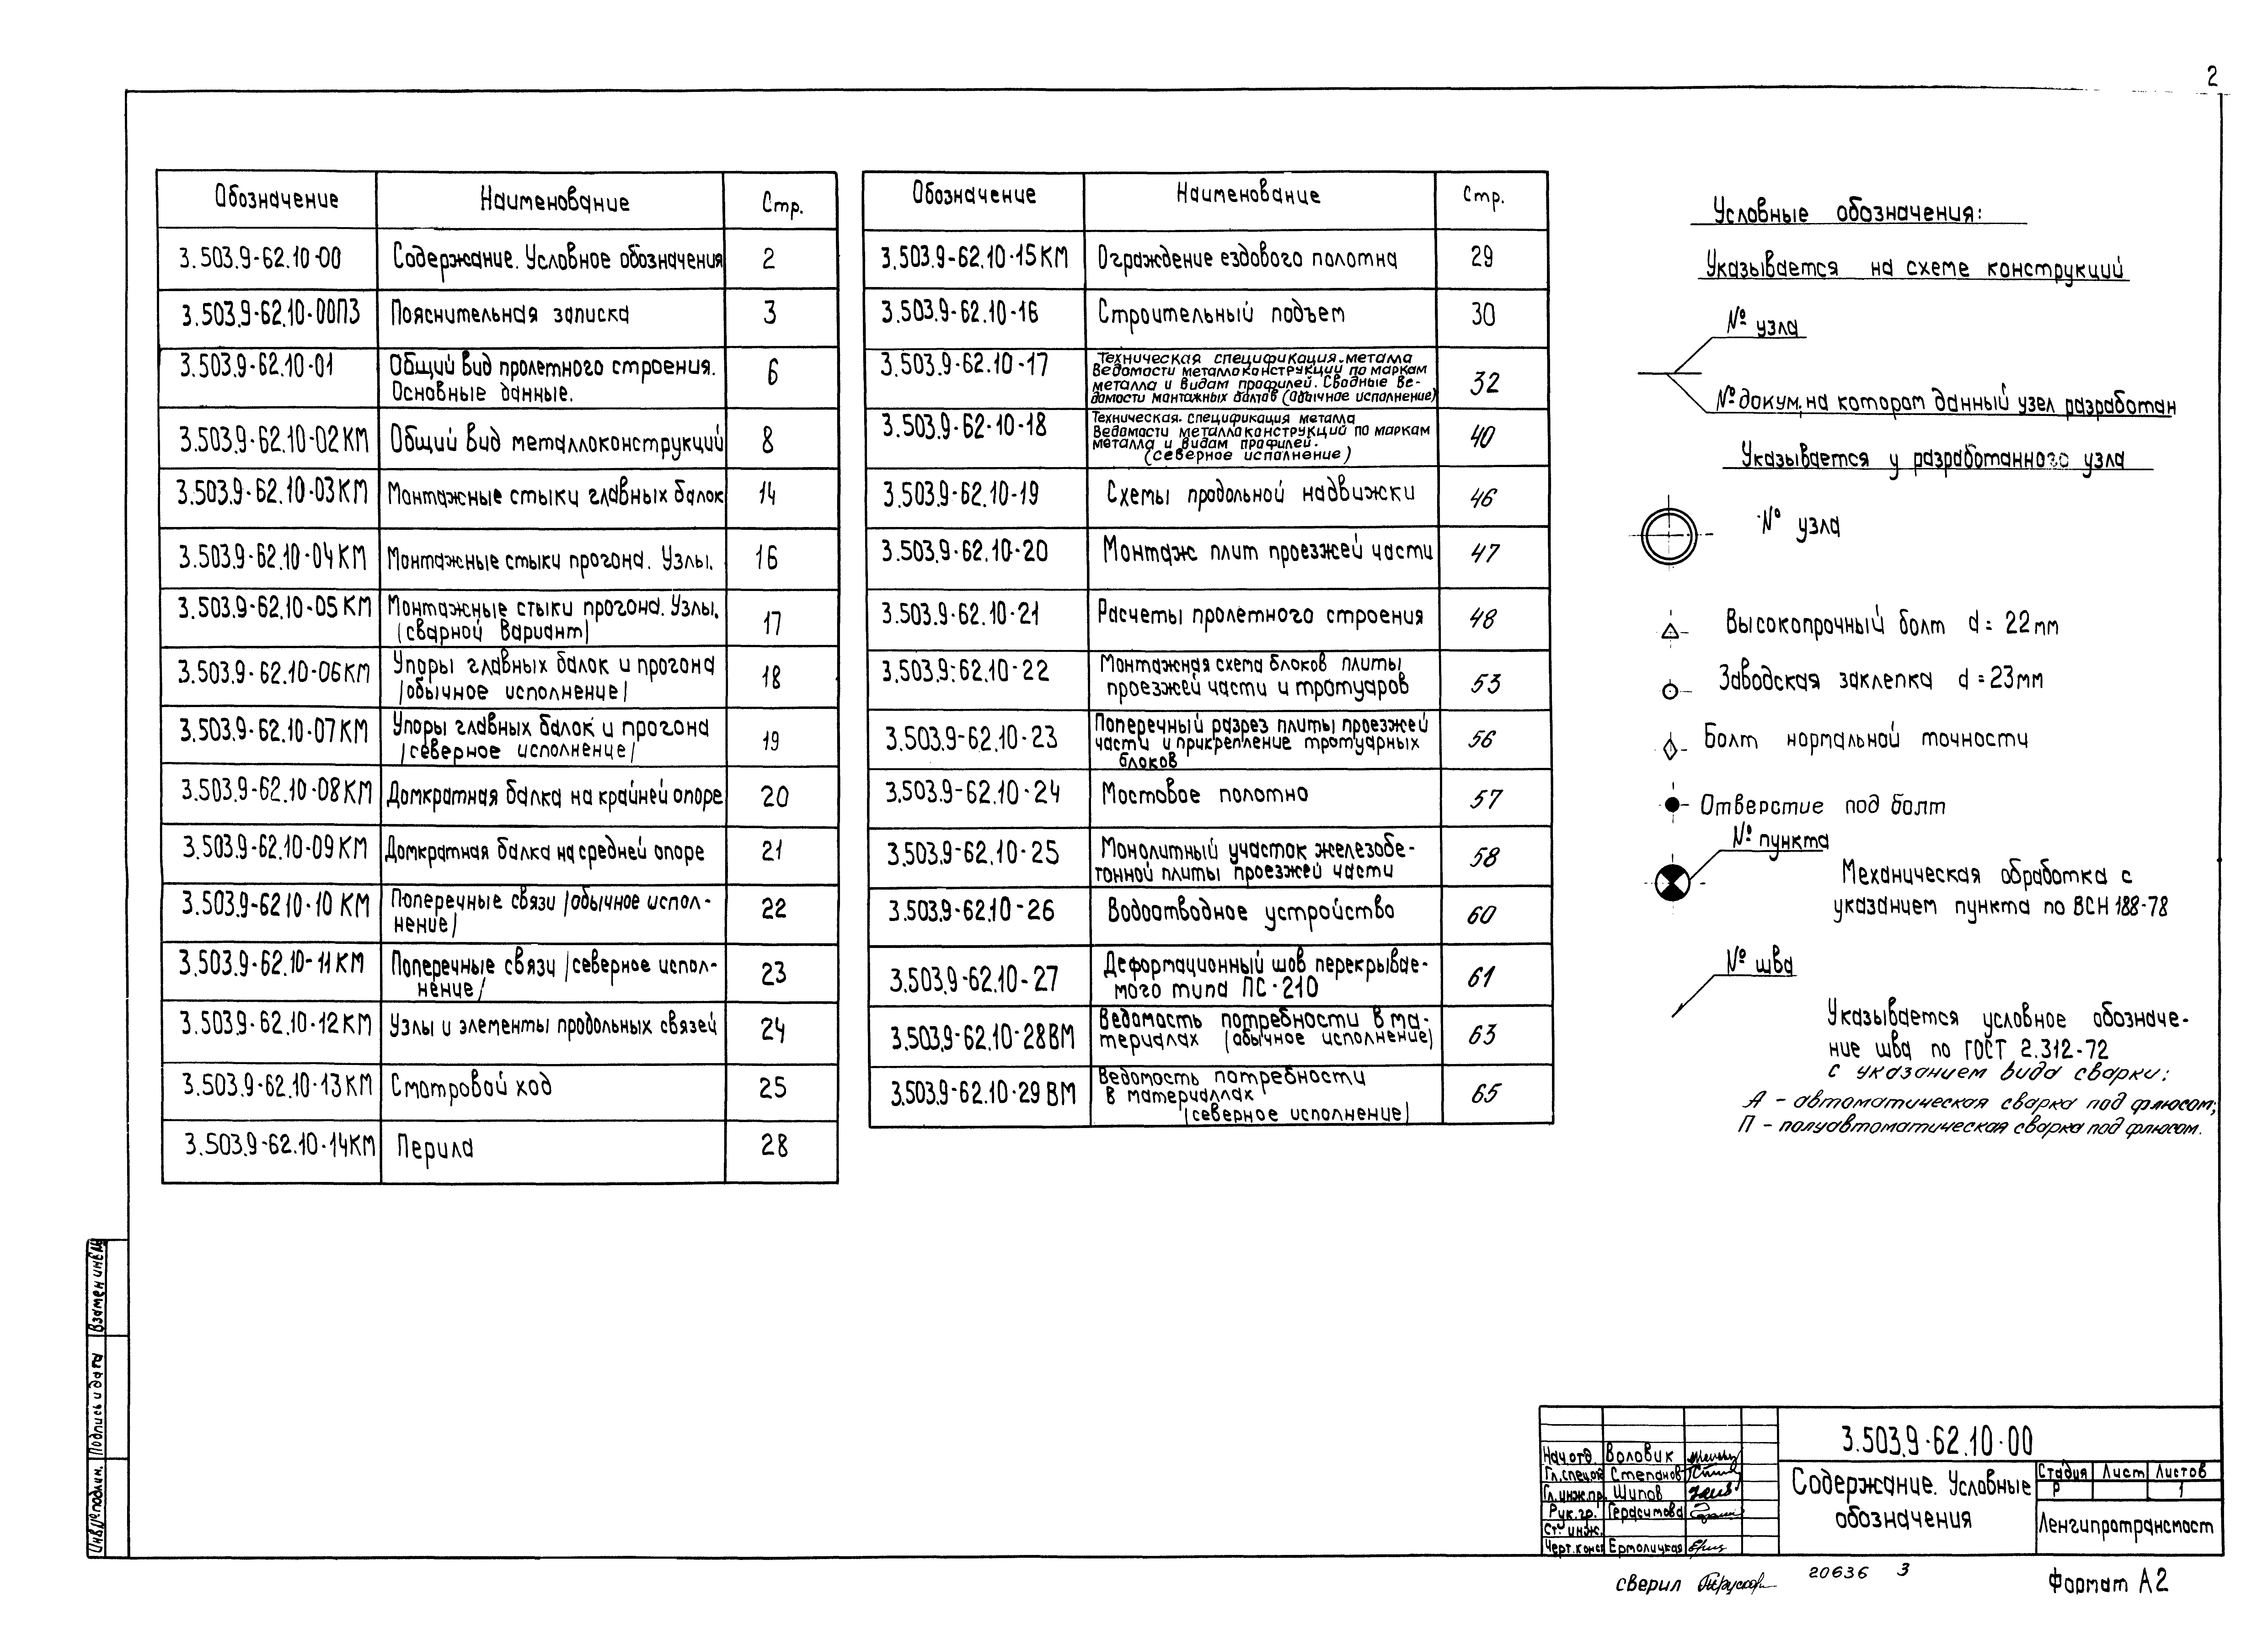 2
Обозначение Наименование Стр.
3.503.9-62.10-00 Содержание. Условное обозначения 2
3.503.9-62.10-00ПЗ Пояснительная записка 3
3.503.9-62.10-01 Общий вид пролетного строения. 6
Основные данные.
3.503.9-62.10-02КМ Общий вид металлоконструкций 8
3.503.9-62.10-03КМ Монтажные стыки главных балок 14
3.503.9-62.10-04КМ Монтажные стыки прогона. Узлы. 16
3.503.9-62.10-05КМ Монтажные стыки прогона. Узлы. 17
(сварной вариант)
3.503.9-62.10-06КМ Упоры главных балок и прогона 18
/обычное исполнение/
3.503.9-62.10-07КМ Упоры главных балок и прогона 19
/северное исполнение/
3.503.9-62.10-08КМ Домкратная балка на крайней опоре 20
3.503.9-62.10-09КМ Домкратная балка на средней опоре 21
3.503.9-62 10-10 КМ Поперечные связи /обычное испол- 22
нение/
3.503.9-62.10-11КМ Поперечные связи /северное испол- 23
нение/
3.503.9-62.10-12КМ Узлы и элементы продольных связей 24
3.503.9-62.10-13КМ Смотровой ход 25
3.503.9-62.10-14КМ Перила 28
Обозначение Наименование Стр.
3.503.9-62.10-15КМ Ограждение ездового полотна 29
3.503.9-62.10-16 Строительный подъем 30
3.503.9-62.10-17 Техническая спецификация металла 32
Ведомости металлоконструкций по маркам
металла и видам профилей. Сводные ве-
домости монтажных болтов (обычное исполнение)
3.503.9-62-10-18 Техническая спецификация металла 40
Ведомости металлоконструкций по маркам
металла и видам профилей.
(северное исполнение)
3.503.9-62.10-19 Схемы продольной надвижки 46
3.503.9-62.10-20 Монтаж плит проезжей части 47
3.503.9-62.10-21 Расчеты пролетного строения 48
3.503.9-62.10-22 Монтажная схема блоков плиты 53
проезжей части и тротуаров
3.503.9-62.10-23 Поперечный разрез плиты проезжей 56
части и прикрепление тротуарных
блоков
3.503.9-62.10-24 Мостовое полотно 57
3.503.9-62.10-25 Монолитный участок железобе- 58
тонной плиты проезжей части
3.503.9-62.10-26 Водоотводное устройство 60
3.503.9-62.10-27 Деформационный шов перекрывае- 61
мого типа ПС-210
3.503.9-62.10-28ВМ Ведомость потребности в ма- 63
териалах (обычное исполнение)
3.503.9-62.10-29 ВМ Ведомость потребности 65
в материаллах
(северное исполнение)
Условные обозначения:
Указывается на схеме конструкций
№ узла
№ докум, на котором данный узел разработан
Указывается у разработанного узла
№ узла
Высокопрочный болт d = 22мм
Заводская заклепка d = 23мм
Болт нормальной точности
Отверстие под болт
№ пункта
Механическая обработка с
указанием пункта по ВСН 188-78
№ шва
Указывается условное обозначе-
ние шва по ГОСТ 2.312-72
с указанием вида сварки:
А - автоматическая сварка под флюсом;
П - полуавтоматическая сварка под флюсом.
Взамен инв№
Подпись и дата
Инв№подлин.
Нач.отд. Воловик
Гл.спец.от Степанов
Гл.инж.пр. Шипов
Рук.гр. Герасимова
Ст. инж.
Черт.конст Ермолицкая
3.503.9-62.10-00
Содержание. Условные
обозначения
Стадия Лист Листов
Р 1
Ленгипротрансмост
сверил
20636 3
Формат А2